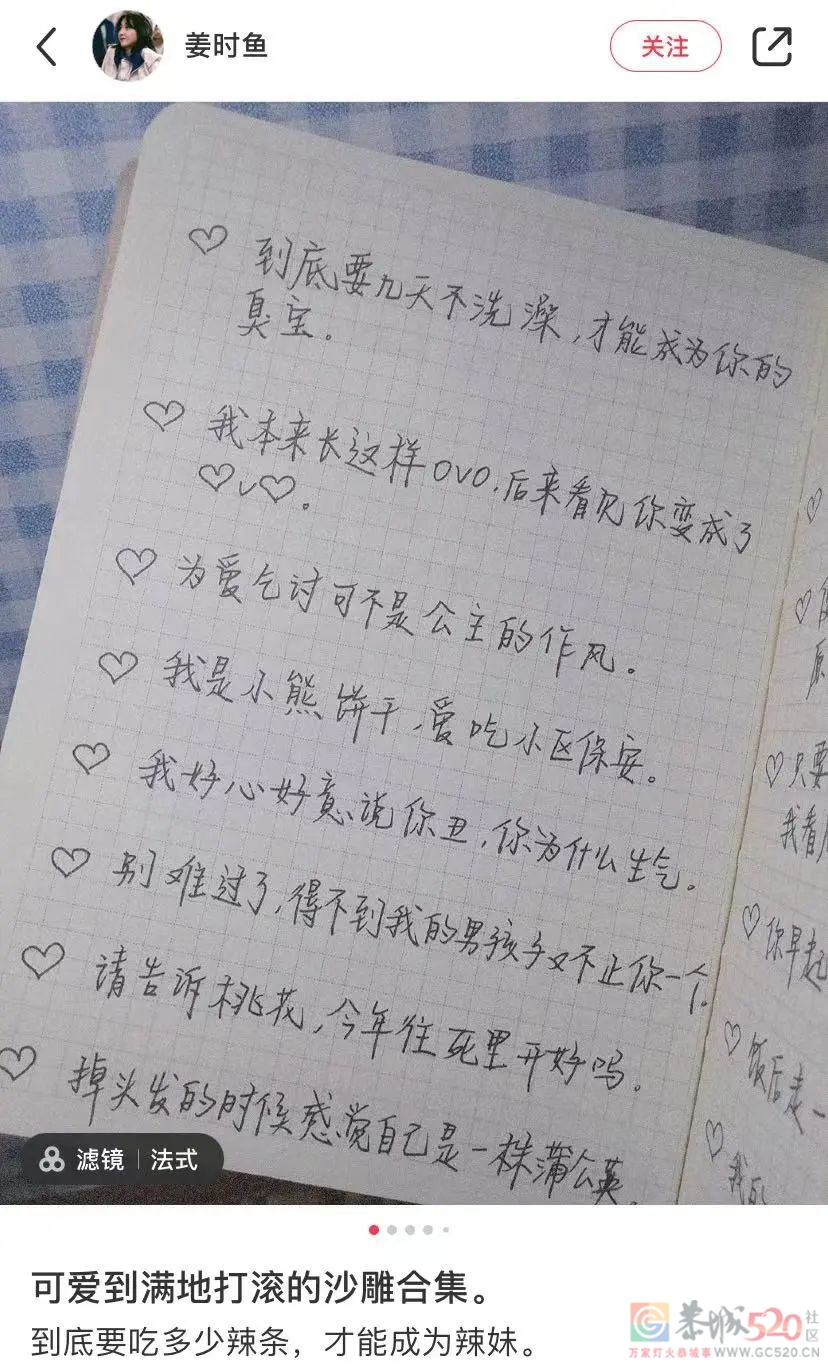 姜时鱼
关注
♡ 到底要九天不洗澡，才能成为你的
臭宝。
♡ 我本来长这样OVO，后来看见你变成了
♡v♡。
♡ 为爱乞讨可不是公主的作风。
♡ 我是小熊饼干，爱吃小区保安。
♡ 我好心好意说你丑，你为什么生气。
♡ 别难过了，得不到我的男孩子又不止你一个。
♡ 请告诉桃花，今年往死里开好吗。
♡ 掉头发的时候感觉自己是一株蒲公英。
♡
♡
原
♡ 只要
我看
♡ 你早起
♡ 饭后走一
♡ 我的
滤镜 | 法式
可爱到满地打滚的沙雕合集。
到底要吃多少辣条，才能成为辣妹。
恭城520社区
万家灯火恭城事 WWW.GC520.CN